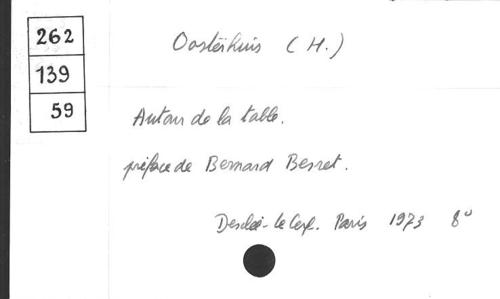 262
139
59
Oosterhuis (H.)
Autour de la table.
préface de Bernard Besret.
Desclée - le Cerf. Paris 1973 8°